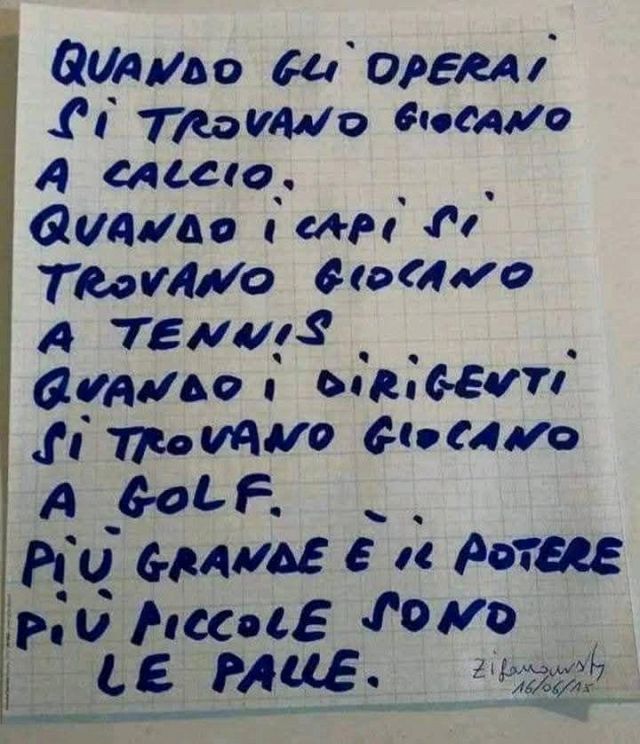 QUANDO GLI OPERAI
SI TROVANO GIOCANO
A CALCIO.
QUANDO I CAPI SI
TROVANO GIOCANO
A TENNIS
QUANDO I DIRIGENTI
SI TROVANO GIOCANO
A GOLF.
PIÙ GRANDE È IL POTERE
PIÙ PICCOLE SONO
LE PALLE.
16/06/15